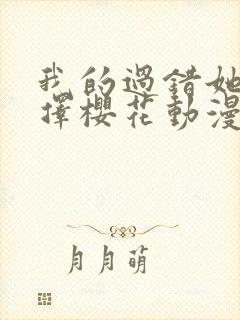 我的過錯她
擇櫻花動漫
月月萌